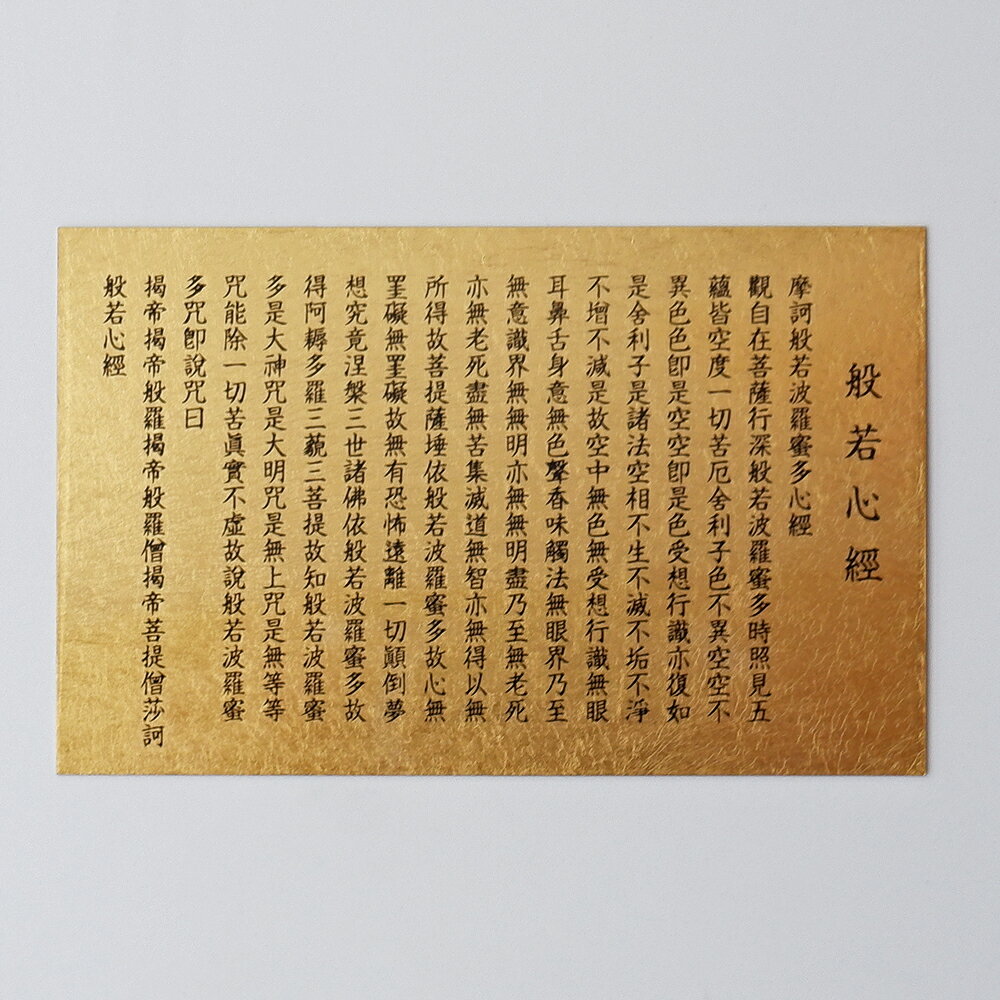 般若心經
摩訶般若波羅蜜多心經
觀自在菩薩行深般若波羅蜜多時照見五
蘊皆空度一切苦厄舍利子色不異空空不
異色色卽是空空卽是色受想行識亦復如
是舍利子是諸法空相不生不滅不垢不淨
不增不減是故空中無色無受想行識無眼
耳鼻舌身意無色聲香味觸法無眼界乃至
無意識界無無明亦無無明盡乃至無老死
亦無老死盡無苦集滅道無智亦無得以無
所得故菩提薩埵依般若波羅蜜多故心無
罣礙無罣礙故無有恐怖遠離一切顚倒夢
想究竟涅槃三世諸佛依般若波羅蜜多故
得阿耨多羅三藐三菩提故知般若波羅蜜
多是大神咒是大明咒是無上咒是無等等
咒能除一切苦眞實不虛故說般若波羅蜜
多咒卽說咒曰
揭帝揭帝般羅揭帝般羅僧揭帝菩提僧莎訶
般若心經